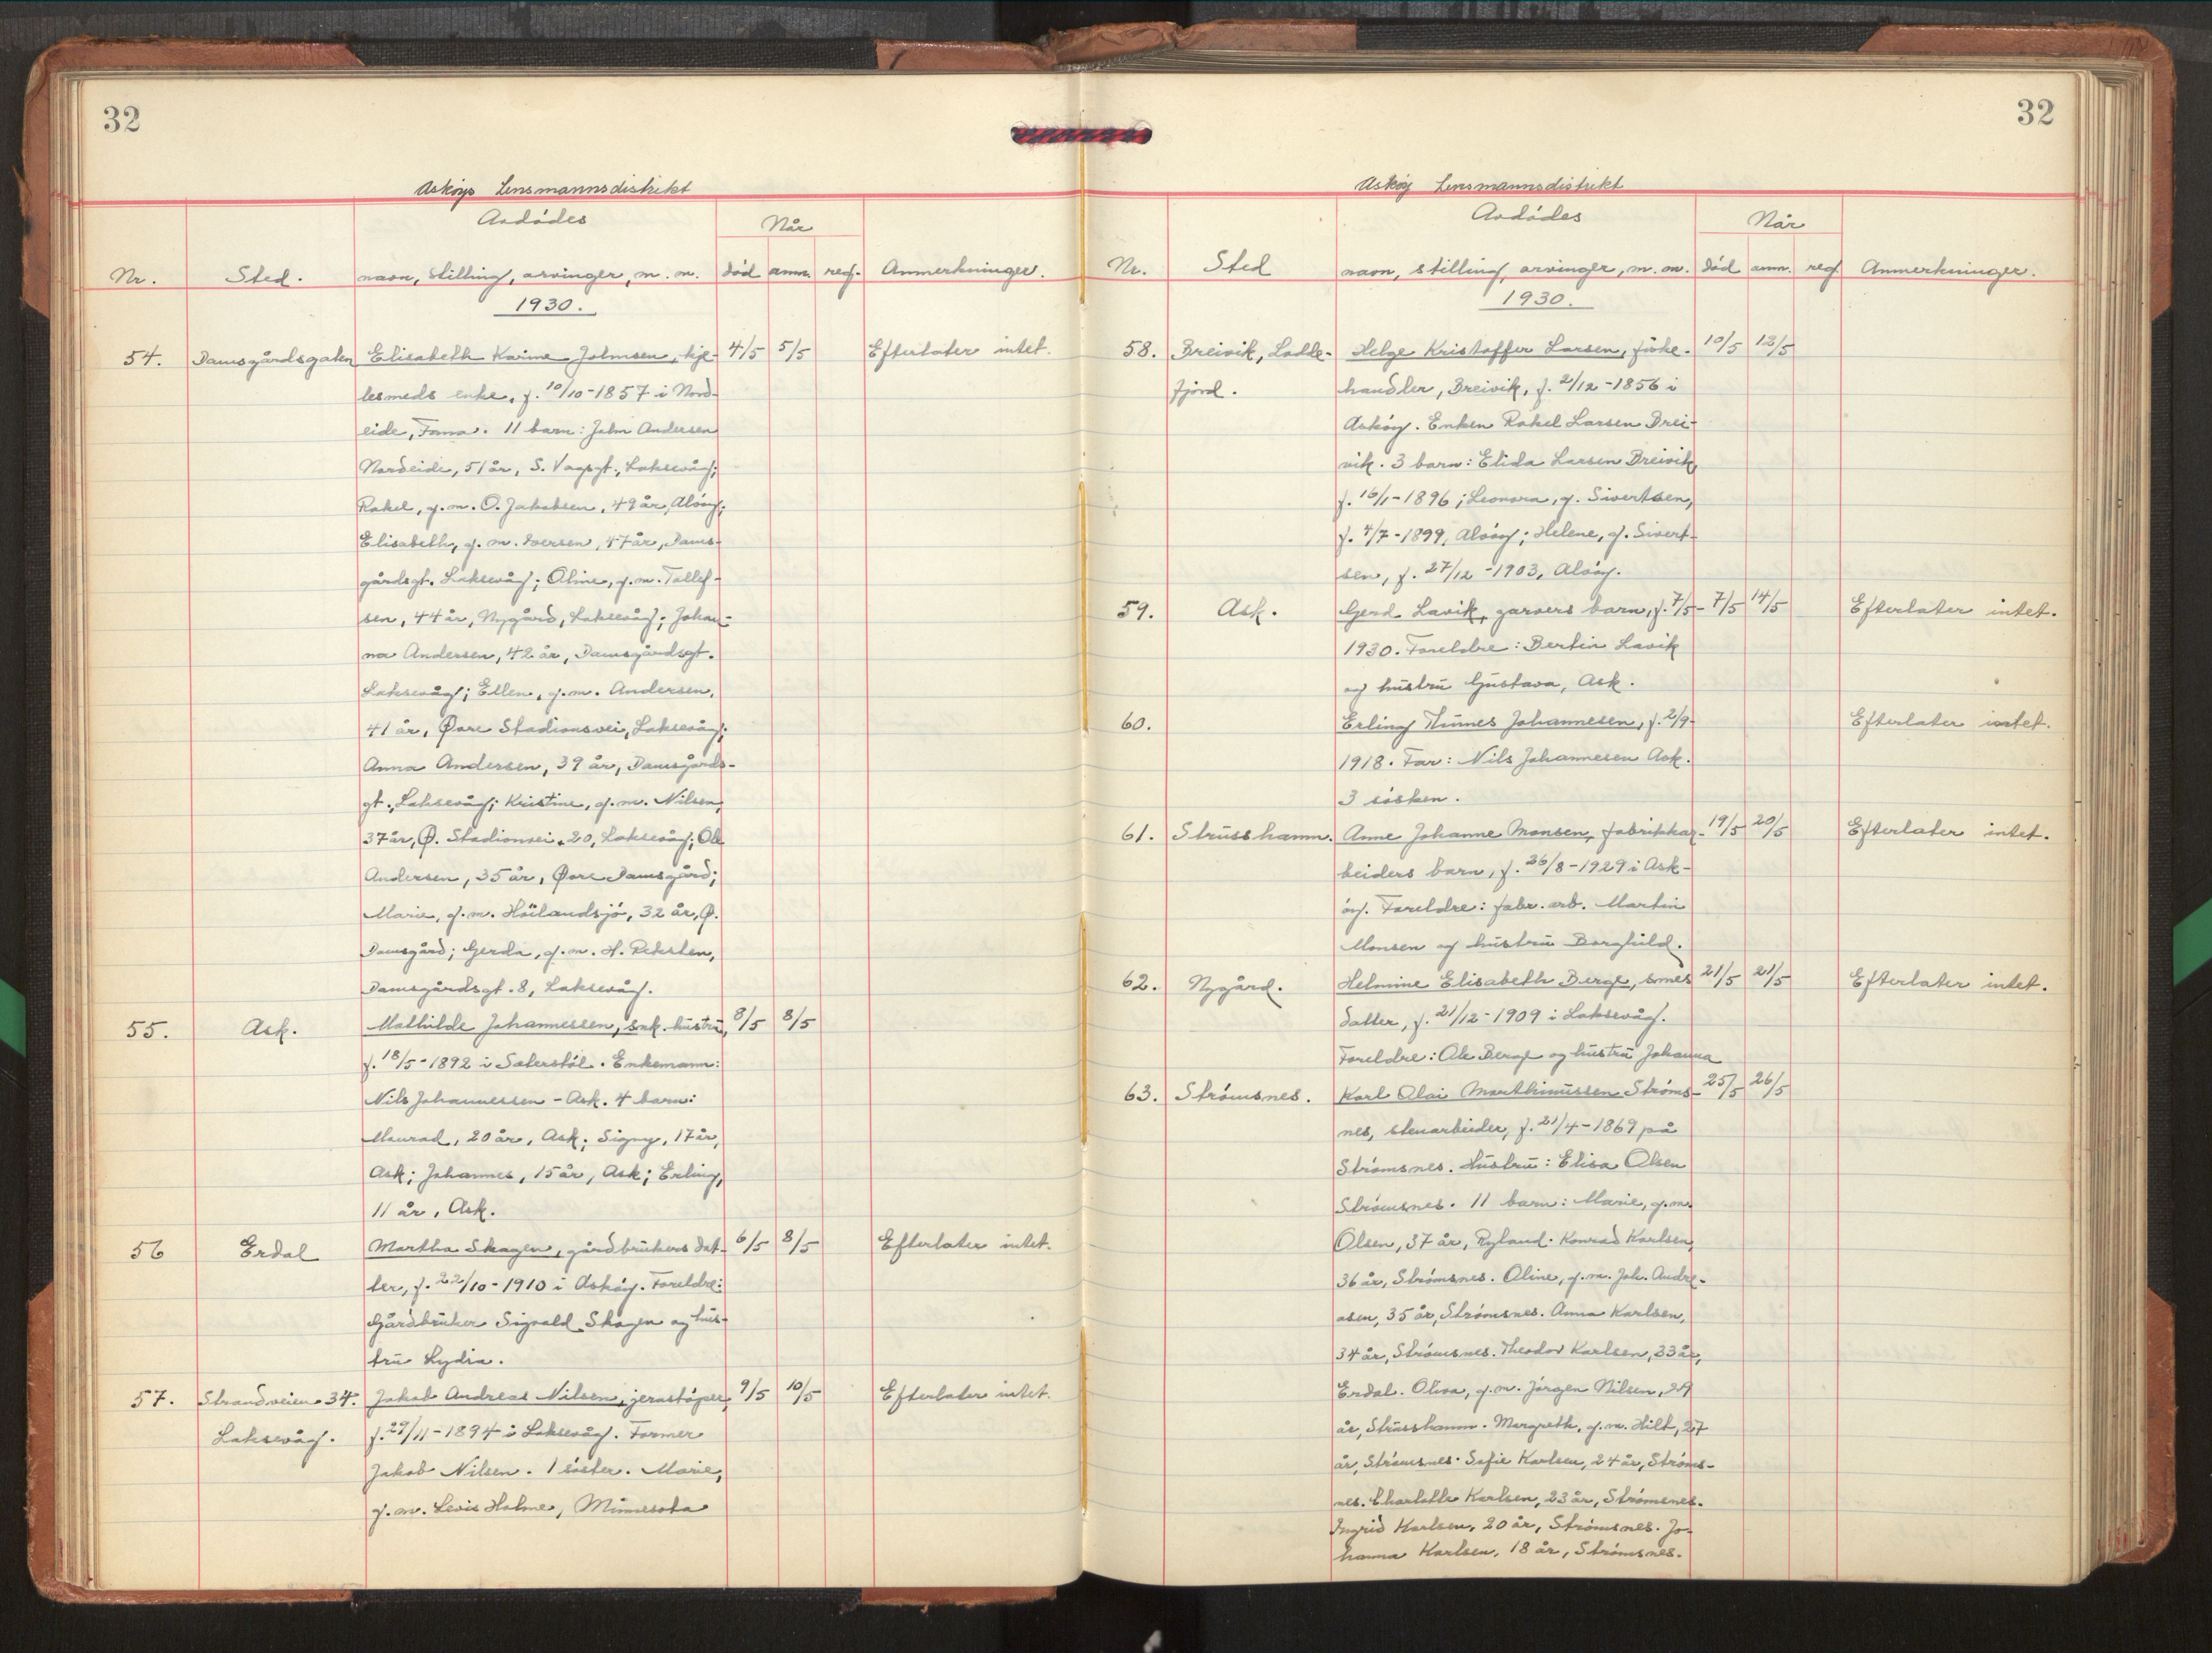 32
Askøys Lensmannsdistrikt
Avdødes
Når
Nr. Sted. navn, stilling, arvinger, m. m. død anm. reg. Anmerkninger.
1930.
54. Damsgårdsgaten Elisabeth Karine Johnsen, kje- 4/5 5/5 Efterlater intet.
lesmeds enke, f. 10/10-1857 i Nord-
eide, Fana. 11 barn: John Andersen
Nordeide, 51 år, S. Vagsgt., Laksevåg;
Rakel, g.m. O. Jakobsen, 49 år, Alvøy;
Elisabeth, g. m. Iversen, 47 år, Dams-
gårdsgt. Laksevåg; Oline, g.m. Tollef-
sen, 44 år, Nygård, Laksevåg; Johan-
na Andersen, 42 år, Damsgårdsgt.
Laksevåg; Ellen, g.m. Andersen,
41 år, Øvre Stadionsvei, Laksevåg;
Anna Andersen, 39 år, Damsgårds-
gt., Laksevåg; Kristine, g.m. Nilsen,
37 år, Ø. Stadionsvei 20, Laksevåg; Ole
Andersen, 35 år, Øvre Damsgård;
Marie, g.m. Høilandsjø, 32 år, Ø.
Damsgård; Gerda, g.m. H. Reksten,
Damsgårdsgt. 8, Laksevåg.
55. Ask. Mathilde Johannessen, snk. hustru, 8/5 8/5
f. 18/5-1892 i Sæterstøl. Enkemann:
Nils Johannessen - Ask. 4 barn:
Maurad, 20 år, Ask; Signy, 17 år,
Ask; Johannes, 15 år, Ask; Erling,
11 år, Ask.
56 Erdal Martha Skagen, gårdbrukers dat- 6/5 8/5 Efterlater intet.
ter, f. 22/10-1910 i Askøy. Foreldre:
Gårdbruker Sigvald Skagen og hus-
tru Lydia.
57. Strandveien 34. Jakob Andreas Nilsen, jernstøper, 9/5 10/5 Efterlater intet.
Laksevåg. f. 29/11-1894 i Laksevåg. Former
Jakob Nilsen. 1 søster. Marie,
g. m. Levis Holme, Minnesota
32
Askøy Lensmannsdistrikt
Avdødes
Når
Nr. Sted navn, stilling, arvinger, m. m. død anm. reg. Anmerkninger.
1930.
58. Breivik, Lodde- Helge Kristoffer Larsen, fiske- 10/5 12/5
fjord. handler, Breivik, f. 2/12-1856 i
Askøy. Enken Rakel Larsen Brei-
vik. 3 barn: Elida Larsen Breivik,
f. 16/1-1896; Leonora, g. Sivertsen,
f. 4/7-1899, Alvøy; Helene, g. Sivert-
sen, f. 27/12-1903, Alvøy.
59. Ask. Gerd Lavik, garvers barn, f. 7/5- 7/5 14/5 Efterlater intet.
1930. Foreldre: Bertin Lavik
og hustru Gustava, Ask.
60. Erling Thunes Johannesen, f. 2/9- Efterlater intet.
1918. Far: Nils Johannesen Ask.
3 søsken.
61. Strusshamn. Anne Johanne Monsen, fabrikkar- 19/5 20/5 Efterlater intet.
beiders barn, f. 26/8-1929 i Ask-
øy. Foreldre: fabr. arb. Martin
Monsen og hustru Borghild.
62. Nygård. Helmine Elisabeth Berge, smeds 21/5 21/5 Efterlater intet.
datter, f. 21/12-1909 i Laksevåg.
Foreldre: Ole Berge og hustru Johanna
63. Strømsnes. Karl Olai Marthinussen Strøms- 25/5 26/5
nes, stenarbeider, f. 21/4-1869 på
Strømsnes. Hustru: Elisa Olsen
Strømsnes. 11 barn: Marie, g.m.
Olsen, 37 år, Ryland. Konrad Karlsen,
36 år, Strømsnes. Oline, g.m. Joh. Andre-
asen, 35 år, Strømsnes. Anna Karlsen,
34 år, Strømsnes. Theodor Karlsen, 33 år,
Erdal. Oliva, g.m. Jørgen Nilsen, 29
år, Strusshamn. Margreth, g.m. Hilt, 27
år, Strømsnes. Sofie Karlsen, 24 år, Strøms-
nes. Charlotte Karlsen, 23 år, Strømsnes.
Ingrid Karlsen, 20 år, Strømsnes. Jo-
hanna Karlsen, 18 år, Strømsnes.